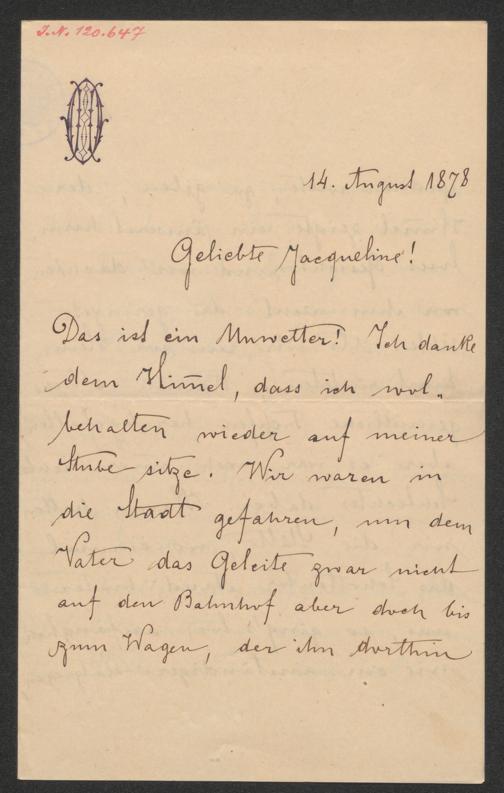 J.N. 120.647
14. August 1878
Geliebte Jacqueline!
Das ist ein Unwetter! Ich danke
dem Him̄el, dass ich wol„
behalten wieder auf meiner
Stube sitze. Wir waren in
die Stadt gefahren, um dem
Vater das Geleite zwar nicht
auf den Bahnhof aber doch bis
zum Wagen, der ihn dorthin